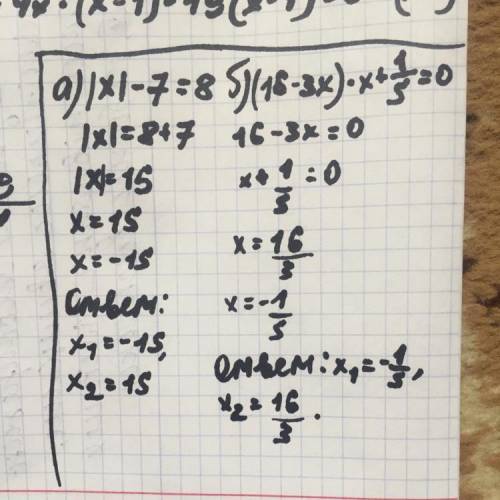 4x·(x-1)=
а) |x|-7=8
|x|=8+7
|x|=15
x=15
x=-15
Ответ:
x₁=-15,
x₂=15
б) (16-3x)·x+1/5=0
16-3x=0
x+1/5=0
x=16/3
x=-1/5
ответ: x₁=-1/5,
x₂=16/3.